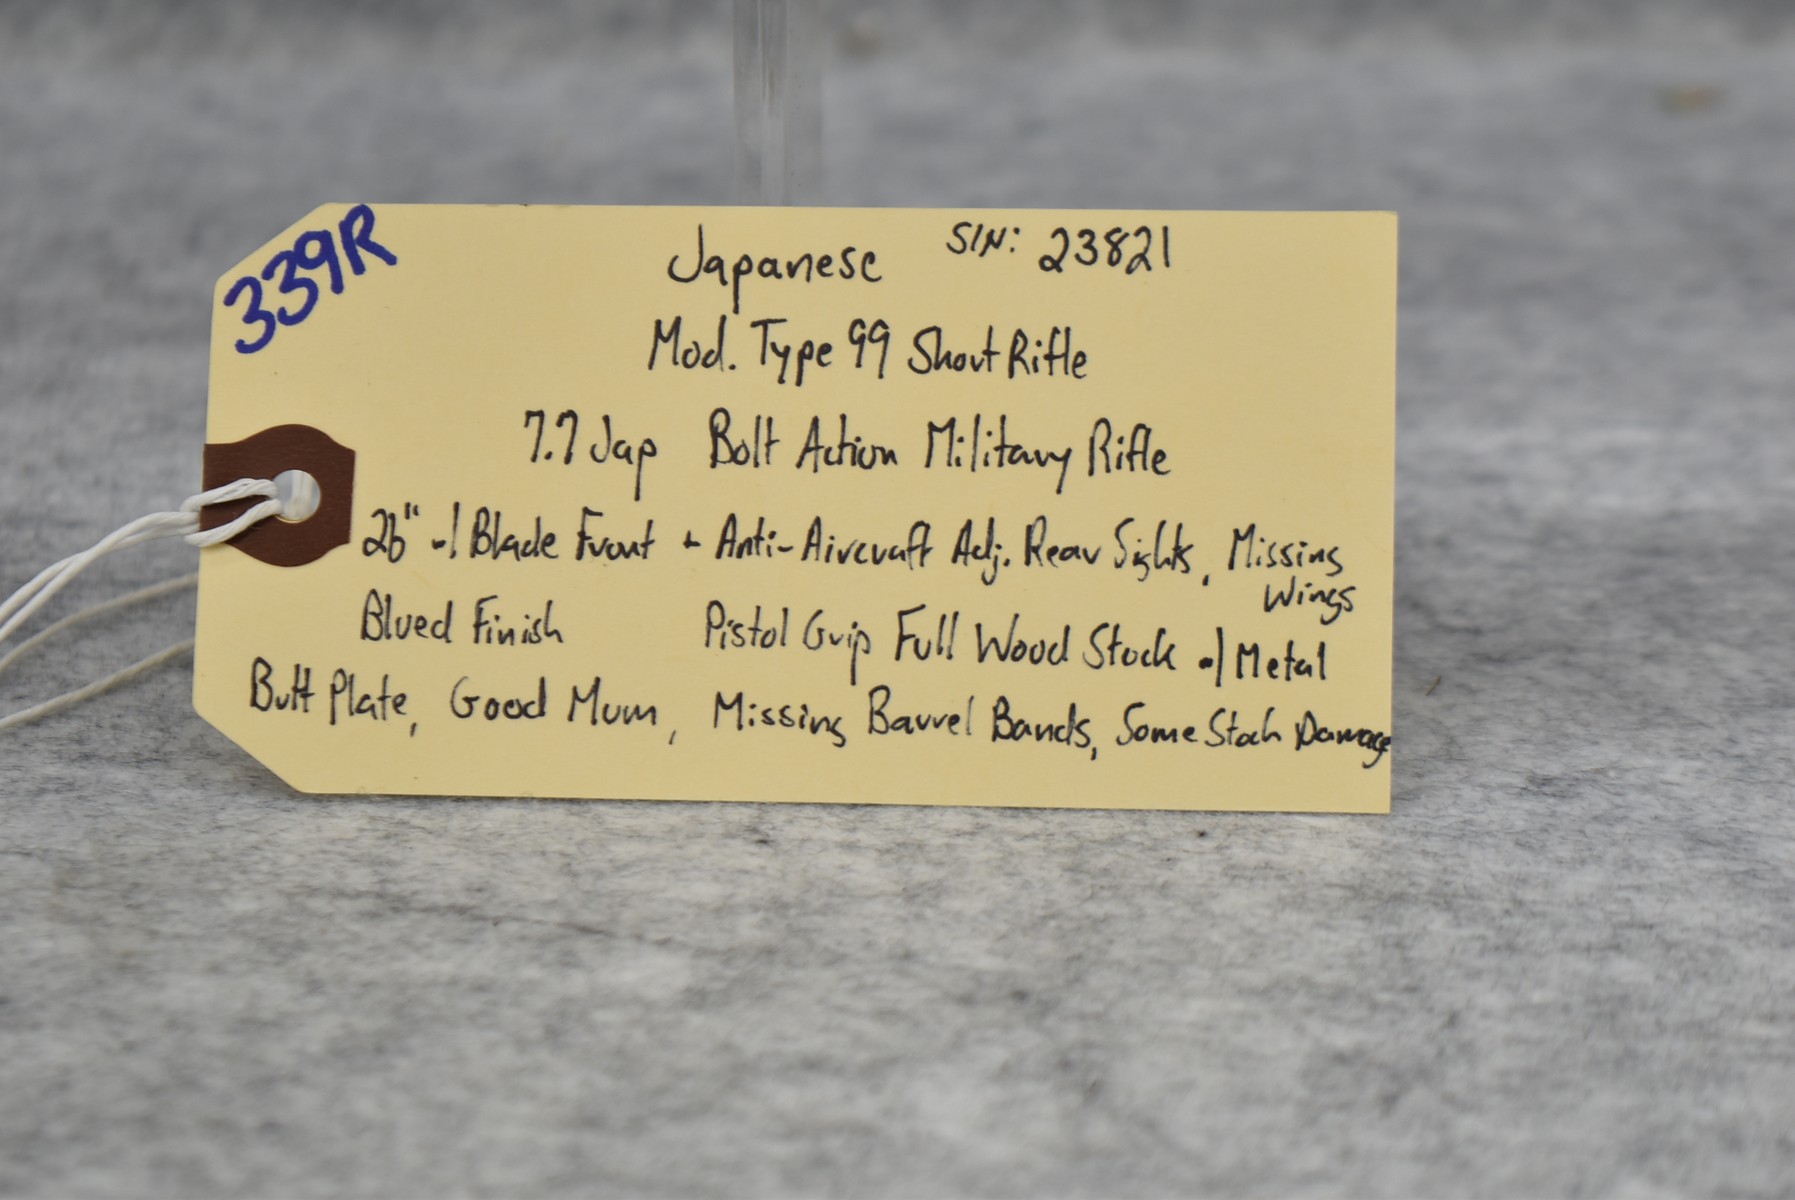 339R
Japanese S/N: 23821
Mod. Type 99 Short Rifle
7.7 Jap Bolt Action Military Rifle
26" w/ Blade Front + Anti-Aircraft Adj. Rear Sights, Missing
Wings
Blued Finish Pistol Grip Full Wood Stock w/ Metal
Butt Plate, Good Mum, Missing Barrel Bands, Some Stock Damage